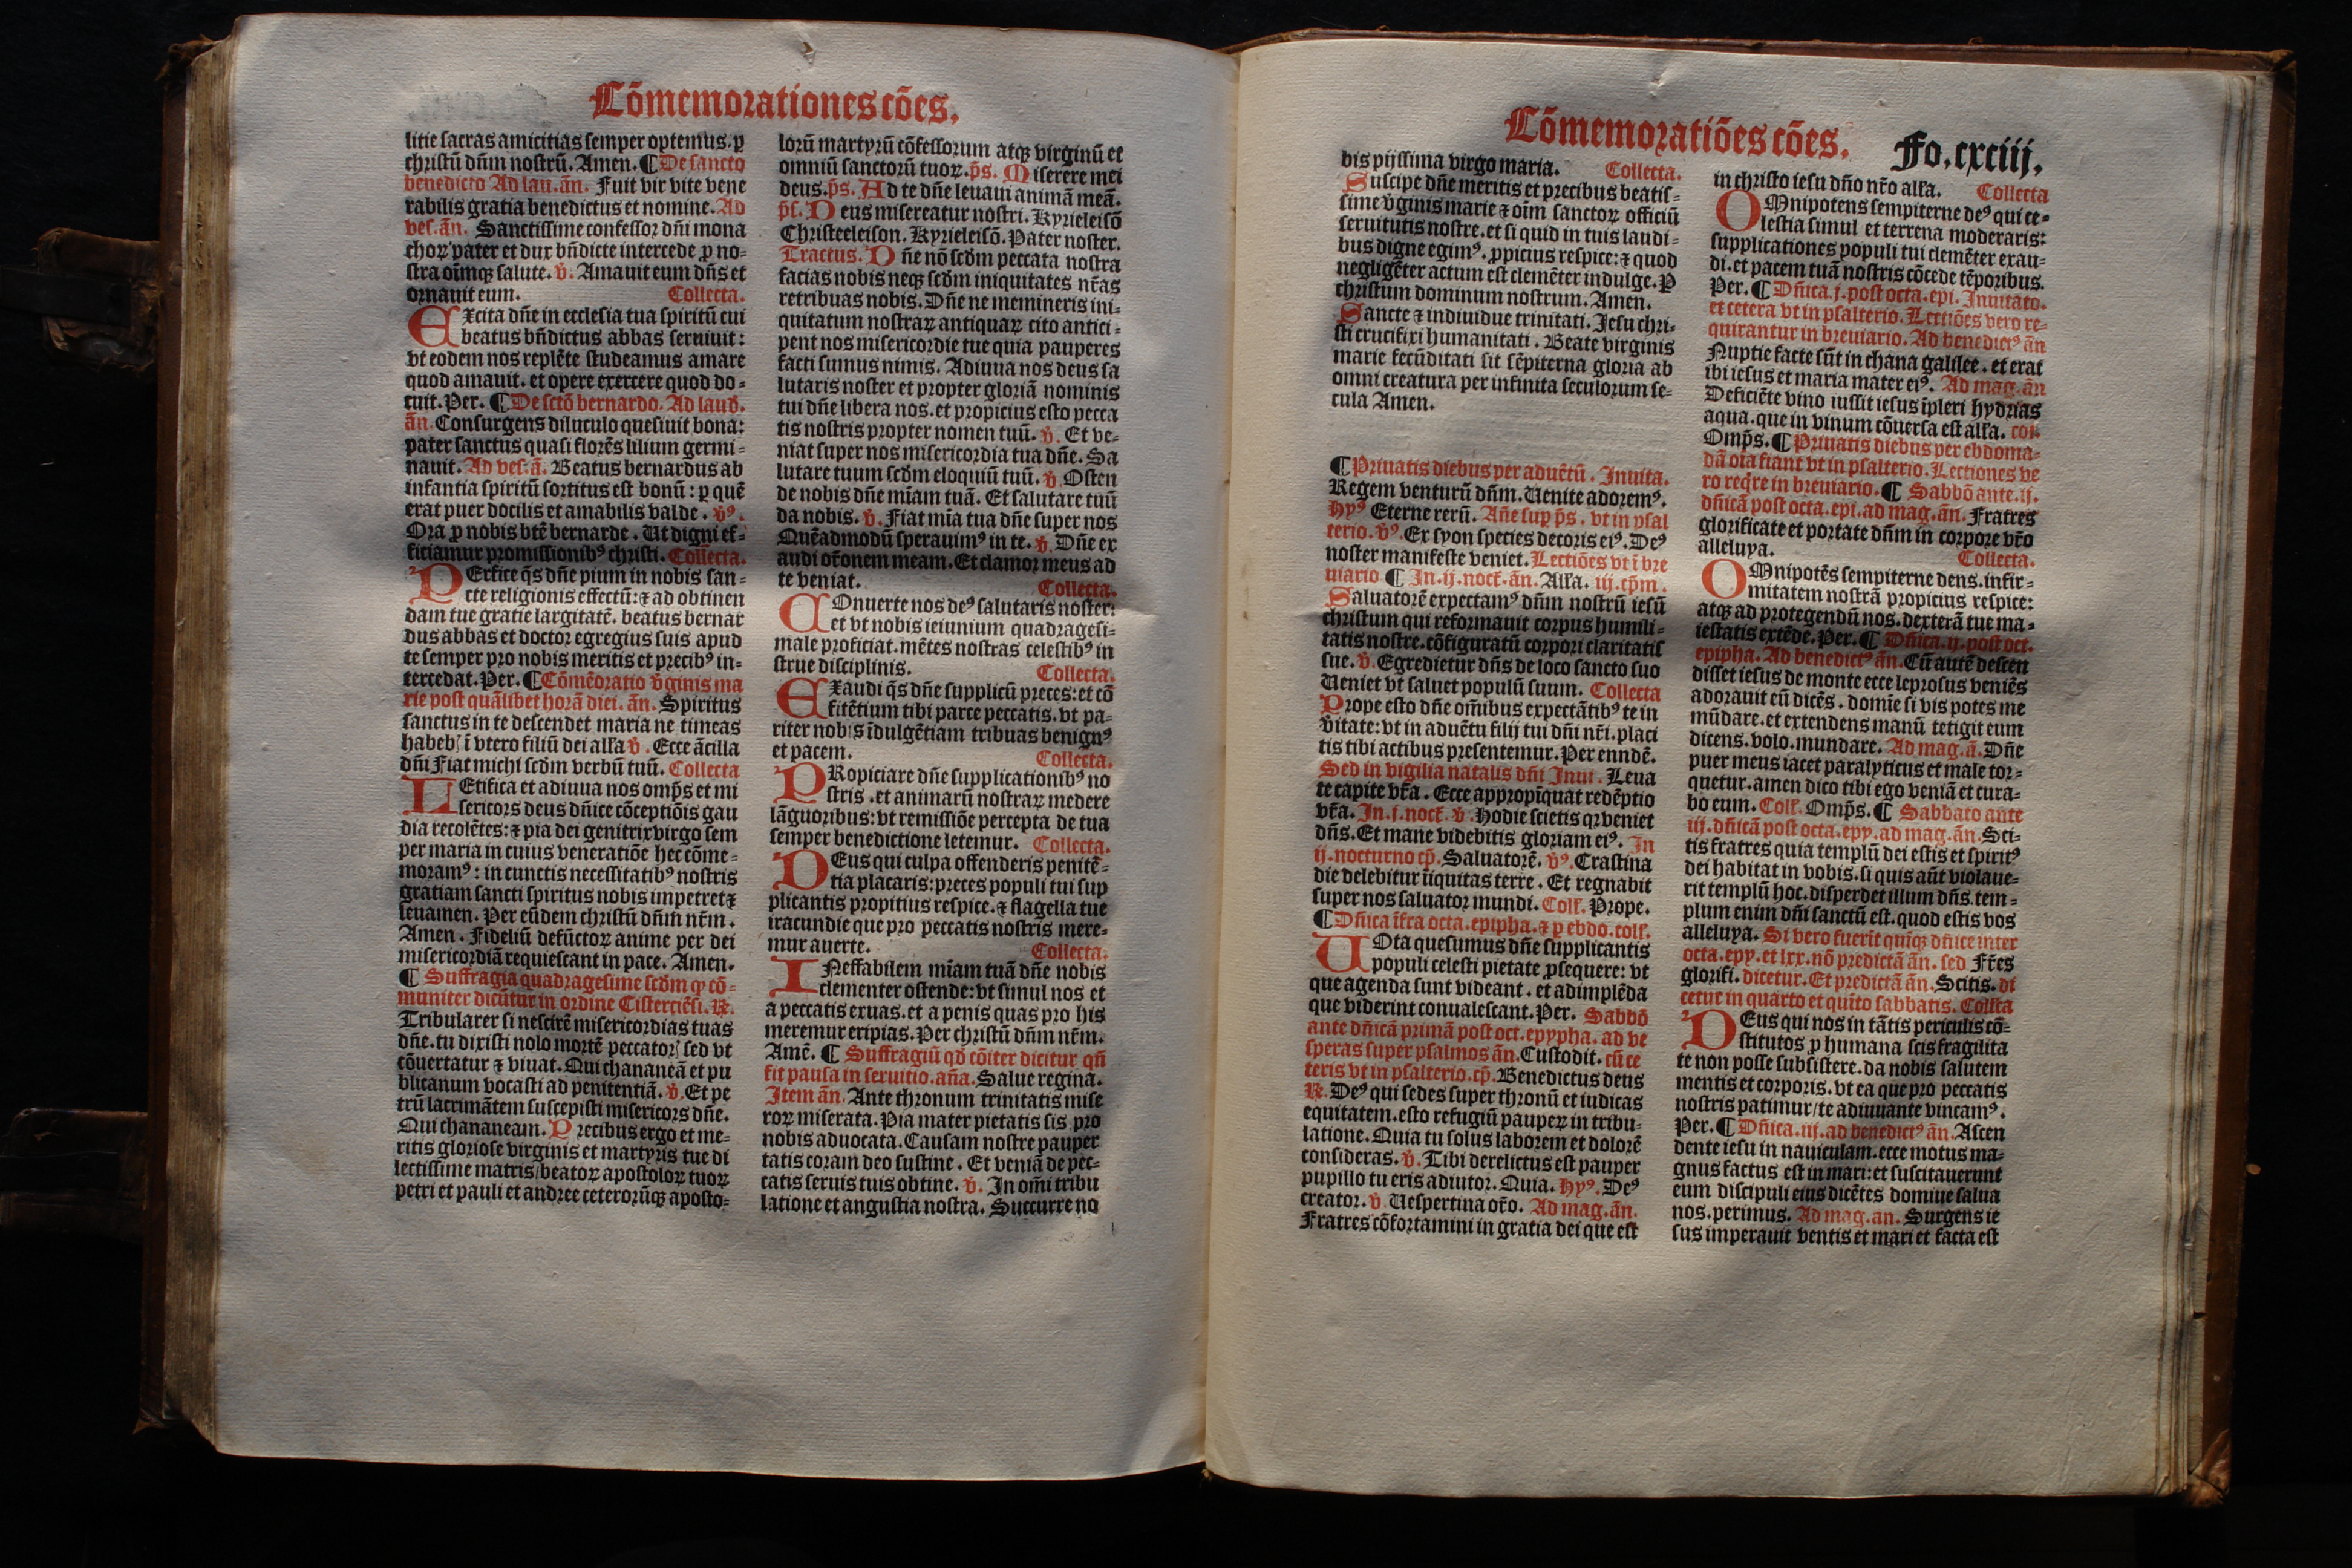 Cōmemorationes cōes.
litie sacras amicitias semper optemus. ꝑ
christū dn̄m nostrū. Amen. ¶ De sancto
benedicto Ad lau. ān. Fuit vir vite vene
rabilis gratia benedictus et nomine. Ad
ves. ān. Sanctissime confessor dn̄i mona
choꝝ pater et dux bn̄dicte intercede ꝓ no-
stra oīmqꝫ salute. ℣. Amauit eum dn̄s et
ornauit eum. Collecta.
EXcita dn̄e in ecclesia tua spiritū cui
beatus bn̄dictus abbas seruiuit:
vt eodem nos replēte studeamus amare
quod amauit. et opere exercere quod do-
cuit. Per. ¶ De sctō bernardo. Ad laud̄.
ān. Consurgens diluculo quesiuit bona:
pater sanctus quasi florēs lilium germi-
nauit. Ad ves. ā. Beatus bernardus ab
infantia spiritū sortitus est bonū: ꝑ quē
erat puer docilis et amabilis valde. ℣ꝰ.
Ora ꝓ nobis btē bernarde. Ut digni ef-
ficiamur promissionibꝰ christi. Collecta.
PErfice q̄s dn̄e pium in nobis san-
cte religionis effectū: ⁊ ad obtinen
dam tue gratie largitatē. beatus bernar
dus abbas et doctor egregius suis apud
te semper pro nobis meritis et precibꝰ in-
tercedat. Per. ¶ Cōmēoratio v̄ginis ma
rie post quālibet horā diei. ān. Spiritus
sanctus in te descendet maria ne timeas
habebꝭ ī vtero filiū dei alla ℣. Ecce ācilla
dn̄i Fiat michi scd̄m verbū tuū. Collecta
LEtifica et adiuua nos omp̄s et mi
sericors deus dn̄ice cōceptiōis gau
dia recolētes: ⁊ pia dei genitrix virgo sem
per maria in cuius veneratiōe hec cōme-
moramꝰ: in cunctis necessitatibꝰ nostris
gratiam sancti spiritus nobis impetret ⁊
leuamen. Per eūdem christū dn̄m nr̄m.
Amen. Fideliū defūctoꝝ anime per dei
misericordiā requiescant in pace. Amen.
¶ Suffragia quadragesime scd̄m qꝫ cō-
muniter dicūtur in ordine Cisterciēsi. ℟.
Tribularer si nescirē misericordias tuas
dn̄e. tu dixisti nolo mortē peccatorꝭ sed vt
cōuertatur ⁊ viuat. Qui chananeā et pu
blicanum vocasti ad penitentiā. ℣. Et pe
trū lacrimātem suscepisti misericors dn̄e.
Qui chananeam. Precibus ergo et me-
ritis gloriose virginis et martyris tue di
lectissime matris/beatoꝝ apostoloꝝ tuoꝝ
petri et pauli et andree ceterorūqꝫ aposto-
lorū martyrū cōfessorum atqꝫ virginū et
omniū sanctorū tuoꝝ. p̄s. Miserere mei
deus. p̄s. Ad te dn̄e leuaui animā meā.
p̄s. Deus misereatur nostri. Kyrieleisō
Christeeleison. Kyrieleisō. Pater noster.
Tractus. Dn̄e nō scd̄m peccata nostra
facias nobis neqꝫ scd̄m iniquitates nr̄as
retribuas nobis. Dn̄e ne memineris ini-
quitatum nostraꝝ antiquaꝝ cito antici-
pent nos misericordie tue quia pauperes
facti sumus nimis. Adiuua nos deus sa
lutaris noster et propter gloriā nominis
tui dn̄e libera nos. et propicius esto pecca
tis nostris propter nomen tuū. ℣. Et ve-
niat super nos misericordia tua dn̄e. Sa
lutare tuum scd̄m eloquiū tuū. ℣. Osten
de nobis dn̄e mīam tuā. Et salutare tuū
da nobis. ℣. Fiat mīa tua dn̄e super nos
Quēadmodū sperauimꝰ in te. ℣. Dn̄e ex
audi or̄onem meam. Et clamor meus ad
te veniat. Collecta.
COnuerte nos deꝰ salutaris noster:
et vt nobis ieiunium quadragesi-
male proficiat. mētes nostras celestibꝰ in
strue disciplinis. Collecta.
EXaudi q̄s dn̄e supplicū preces: et cō
fitētium tibi parce peccatis. vt pa-
riter nobis īdulgētiam tribuas benignꝰ
et pacem. Collecta.
PRopiciare dn̄e supplicationibꝰ no
stris. et animarū nostraꝝ medere
lāguoribus: vt remissiōe percepta de tua
semper benedictione letemur. Collecta.
DEus qui culpa offenderis penitē-
tia placaris: preces populi tui sup
plicantis propitius respice. ⁊ flagella tue
iracundie que pro peccatis nostris mere-
mur auerte. Collecta.
INeffabilem mīam tuā dn̄e nobis
clementer ostende: vt simul nos et
a peccatis exuas. et a penis quas pro his
meremur eripias. Per christū dn̄m nr̄m.
Amē. ¶ Suffragiū qd̄ cōiter dicitur qn̄
fit pausa in seruitio. an̄a. Salue regina.
Item ān. Ante thronum trinitatis mise
roꝝ miserata. Pia mater pietatis sis pro
nobis aduocata. Causam nostre pauper
tatis coram deo sustine. Et veniā de pec-
catis seruis tuis obtine. ℣. In om̄i tribu
latione et angustia nostra. Succurre no
Cōmemoratiōes cōes. Fo. cxciij.
bis pijssima virgo maria. Collecta.
Suscipe dn̄e meritis et precibus beatis-
sime v̄ginis marie ⁊ oīm sanctoꝝ officiū
seruitutis nostre. et si quid in tuis laudi-
bus digne egimꝰ. ꝓpicius respice: ⁊ quod
negligēter actum est clemēter indulge. ꝑ
christum dominum nostrum. Amen.
Sancte ⁊ indiuidue trinitati. Jesu chri-
sti crucifixi humanitati. Beate virginis
marie fecūditati sit sēpiterna gloria ab
omni creatura per infinita seculorum se-
cula Amen.
¶ Priuatis diebus per aduētū. Inuita.
Regem venturū dn̄m. Uenite adoremꝰ.
Hyꝰ Eterne rerū. An̄e suꝑ p̄s. vt in psal
terio. ℣ꝰ. Ex syon species decoris eiꝰ. Deꝰ
noster manifeste veniet. Lectiōes vt ī bre
uiario ¶ In. ij. noct̄. ān. Alla. iij. cp̄m.
Saluatorē expectamꝰ dn̄m nostrū iesū
christum qui reformauit corpus humili-
tatis nostre. cōfiguratū corpori claritatis
sue. ℣. Egredietur dn̄s de loco sancto suo
Ueniet vt saluet populū suum. Collecta
Prope esto dn̄e om̄ibus expectātibꝰ te in
v̄itate: vt in aduētu filij tui dn̄i nr̄i. placi
tis tibi actibus presentemur. Per eundē.
Sed in vigilia natalis dn̄i Inui. Leua
te capite vr̄a. Ecce appropīquat redēptio
vr̄a. In. j. noct̄. ℣. Hodie scietis qꝛ veniet
dn̄s. Et mane videbitis gloriam eiꝰ. In
ij. nocturno cp̄. Saluatorē. ℣ꝰ. Crastina
die delebitur iīquitas terre. Et regnabit
super nos saluator mundi. Coll̄. Prope.
¶ Dn̄ica īfra octa. epipha. ⁊ ꝑ ebdo. coll̄.
UOta quesumus dn̄e supplicantis
populi celesti pietate ꝓsequere: vt
que agenda sunt videant. et adimplēda
que viderint conualescant. Per. Sabbō
ante dn̄icā primā post oct. epypha. ad ve
speras super psalmos ān. Custodit. cū ce
teris vt in psalterio. cp̄. Benedictus deus
℟. Deꝰ qui sedes super thronū et iudicas
equitatem. esto refugiū paupeꝝ in tribu-
latione. Quia tu solus laborem et dolorē
consideras. ℣. Tibi derelictus est pauper
pupillo tu eris adiutor. Quia. Hyꝰ. Deꝰ
creator. ℣. Uespertina or̄o. Ad mag. ān.
Fratres cōfortamini in gratia dei que est
in christo iesu dn̄o nr̄o alla. Collecta
OMnipotens sempiterne deꝰ qui ce-
lestia simul et terrena moderaris:
supplicationes populi tui clemēter exau-
di. et pacem tuā nostris cōcede tēporibus.
Per. ¶ Dn̄ica. j. post octa. epi. Inuitato.
et cetera vt in psalterio. Lectiōes vero re-
quirantur in breuiario. Ad benedictꝰ ān
Nuptie facte sūt in chana galilee. et erat
ibi iesus et maria mater eiꝰ. Ad mag. ān
Deficiēte vino iussit iesus īpleri hydrias
aqua. que in vinum cōuersa est alla. col.
Omp̄s. ¶ Priuatis diebus per ebdoma-
dā oīa fiant vt in psalterio. Lectiones ve
ro reqr̄e in breuiario. ¶ Sabbō ante. ij.
dn̄icā post octa. epi. ad mag. ān. Fratres
glorificate et portate dn̄m in corpore vr̄o
alleluya. Collecta.
OMnipotēs sempiterne deus. infir-
mitatem nostrā propicius respice:
atqꝫ ad protegendū nos. dexterā tue ma-
iestatis extēde. Per. ¶ Dn̄ica. ij. post oct.
epipha. Ad benedictꝰ ān. Cū autē descen
disset iesus de monte ecce leprosus veniēs
adorauit eū dicēs. domīe si vis potes me
mūdare. et extendens manū tetigit eum
dicens. volo. mundare. Ad mag. ā. Dn̄e
puer meus iacet paralyticus et male tor-
quetur. amen dico tibi ego veniā et cura-
bo eum. Coll̄. Omp̄s. ¶ Sabbato ante
iij. dn̄icā post octa. epy. ad mag. ān. Sci-
tis fratres quia templū dei estis et spiritꝰ
dei habitat in vobis. si quis aūt violaue-
rit templū hoc. disperdet illum dn̄s. tem-
plum enim dn̄i sanctū est. quod estis vos
alleluya. Si vero fuerit quīqꝫ dn̄ice inter
octa. epy. et lxx. nō predictā ān. sed Fr̄es
glorifi. dicetur. Et predictā ān. Scitis. di
cetur in quarto et quīto sabbatis. Coll̄cta
DEus qui nos in tātis periculis cō-
stitutos ꝓ humana scis fragilita
te non posse subsistere. da nobis salutem
mentis et corporis. vt ea que pro peccatis
nostris patimur/te adiuuante vincamꝰ.
Per. ¶ Dn̄ica. iij. ad benedictꝰ ān. Ascen
dente iesu in nauiculam. ecce motus ma-
gnus factus est in mari: et suscitauerunt
eum discipuli eius dicētes domine salua
nos. perimus. Ad mag. an. Surgens ie
sus imperauit ventis et mari et facta est